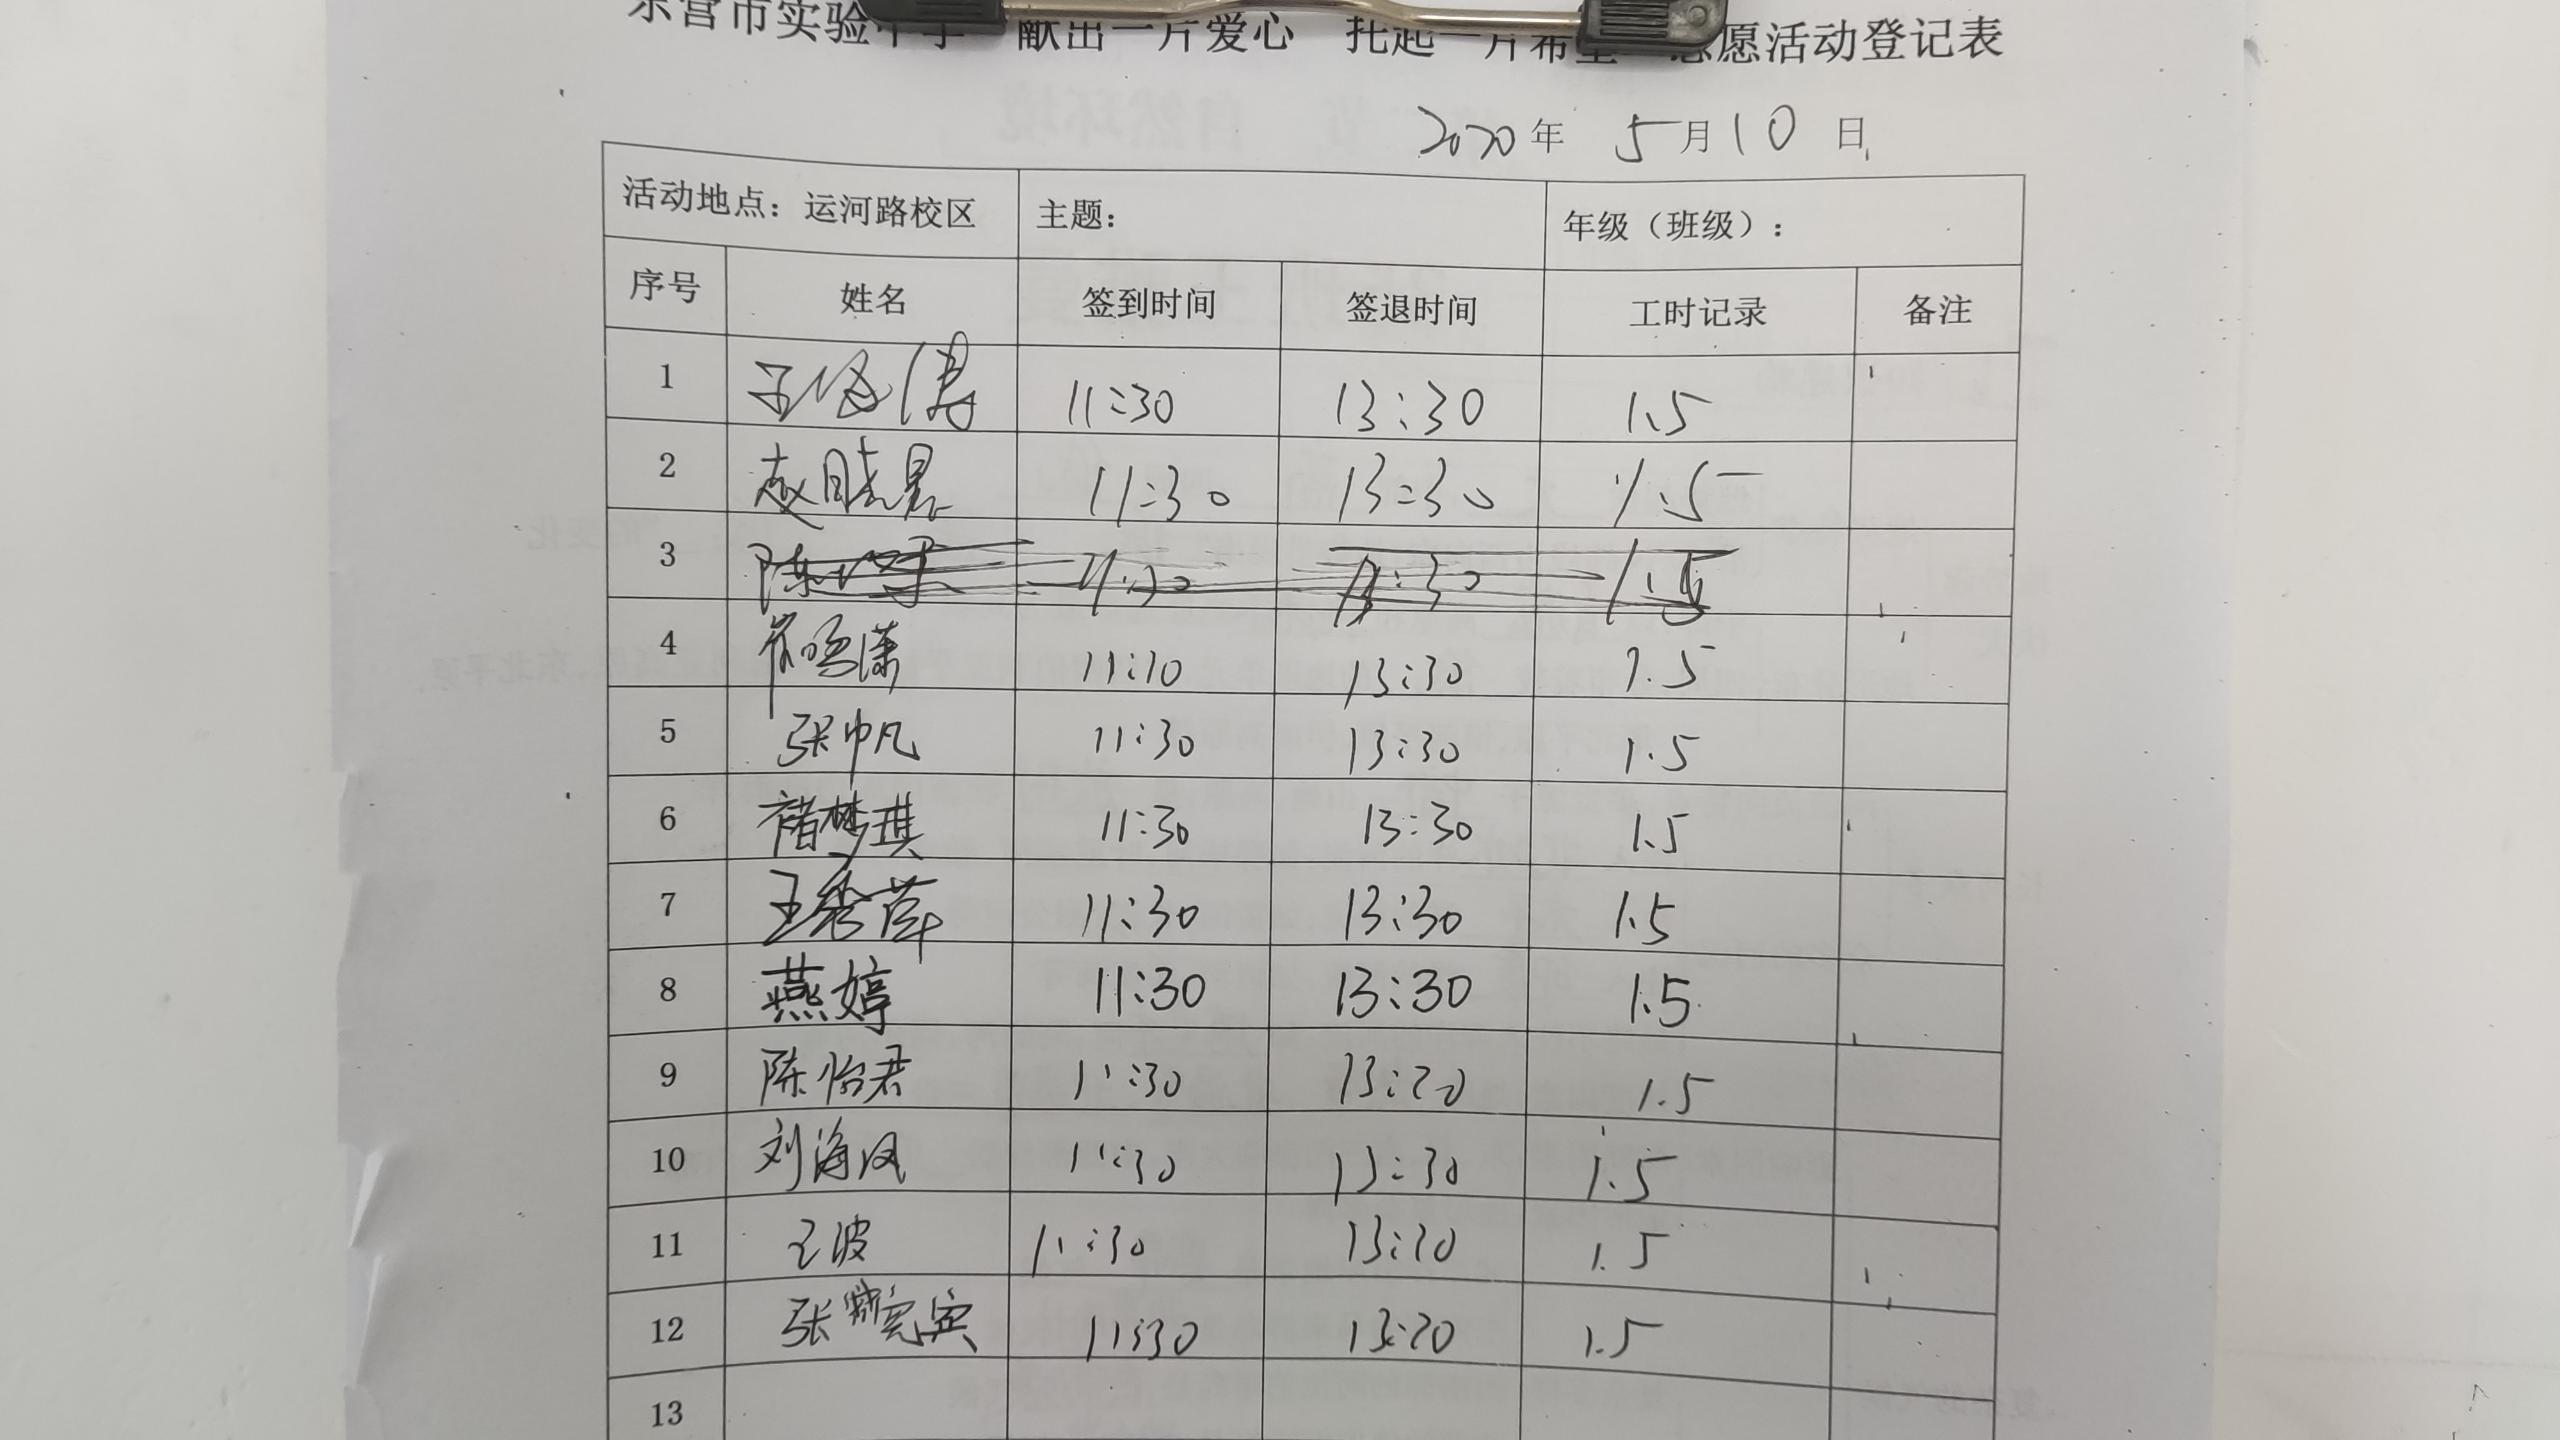 东营市实验中学 献出一片爱心 托起一片希望 志愿活动登记表
2020年 5月10日
活动地点：运河路校区 主题： 年级（班级）：
序号 姓名 签到时间 签退时间 工时记录 备注
1 11:30 13:30 1.5
2 赵晓晨 11:30 13:30 1.5
3 陈 11:30 13:30 1.5
4 崔 11:30 13:30 1.5
5 张帆 11:30 13:30 1.5
6 褚梦琪 11:30 13:30 1.5
7 王秀萍 11:30 13:30 1.5
8 燕婷 11:30 13:30 1.5
9 陈怡君 11:30 13:20 1.5
10 刘海凤 11:30 13:30 1.5
11 王波 11:30 13:30 1.5
12 张 11:30 13:20 1.5
13